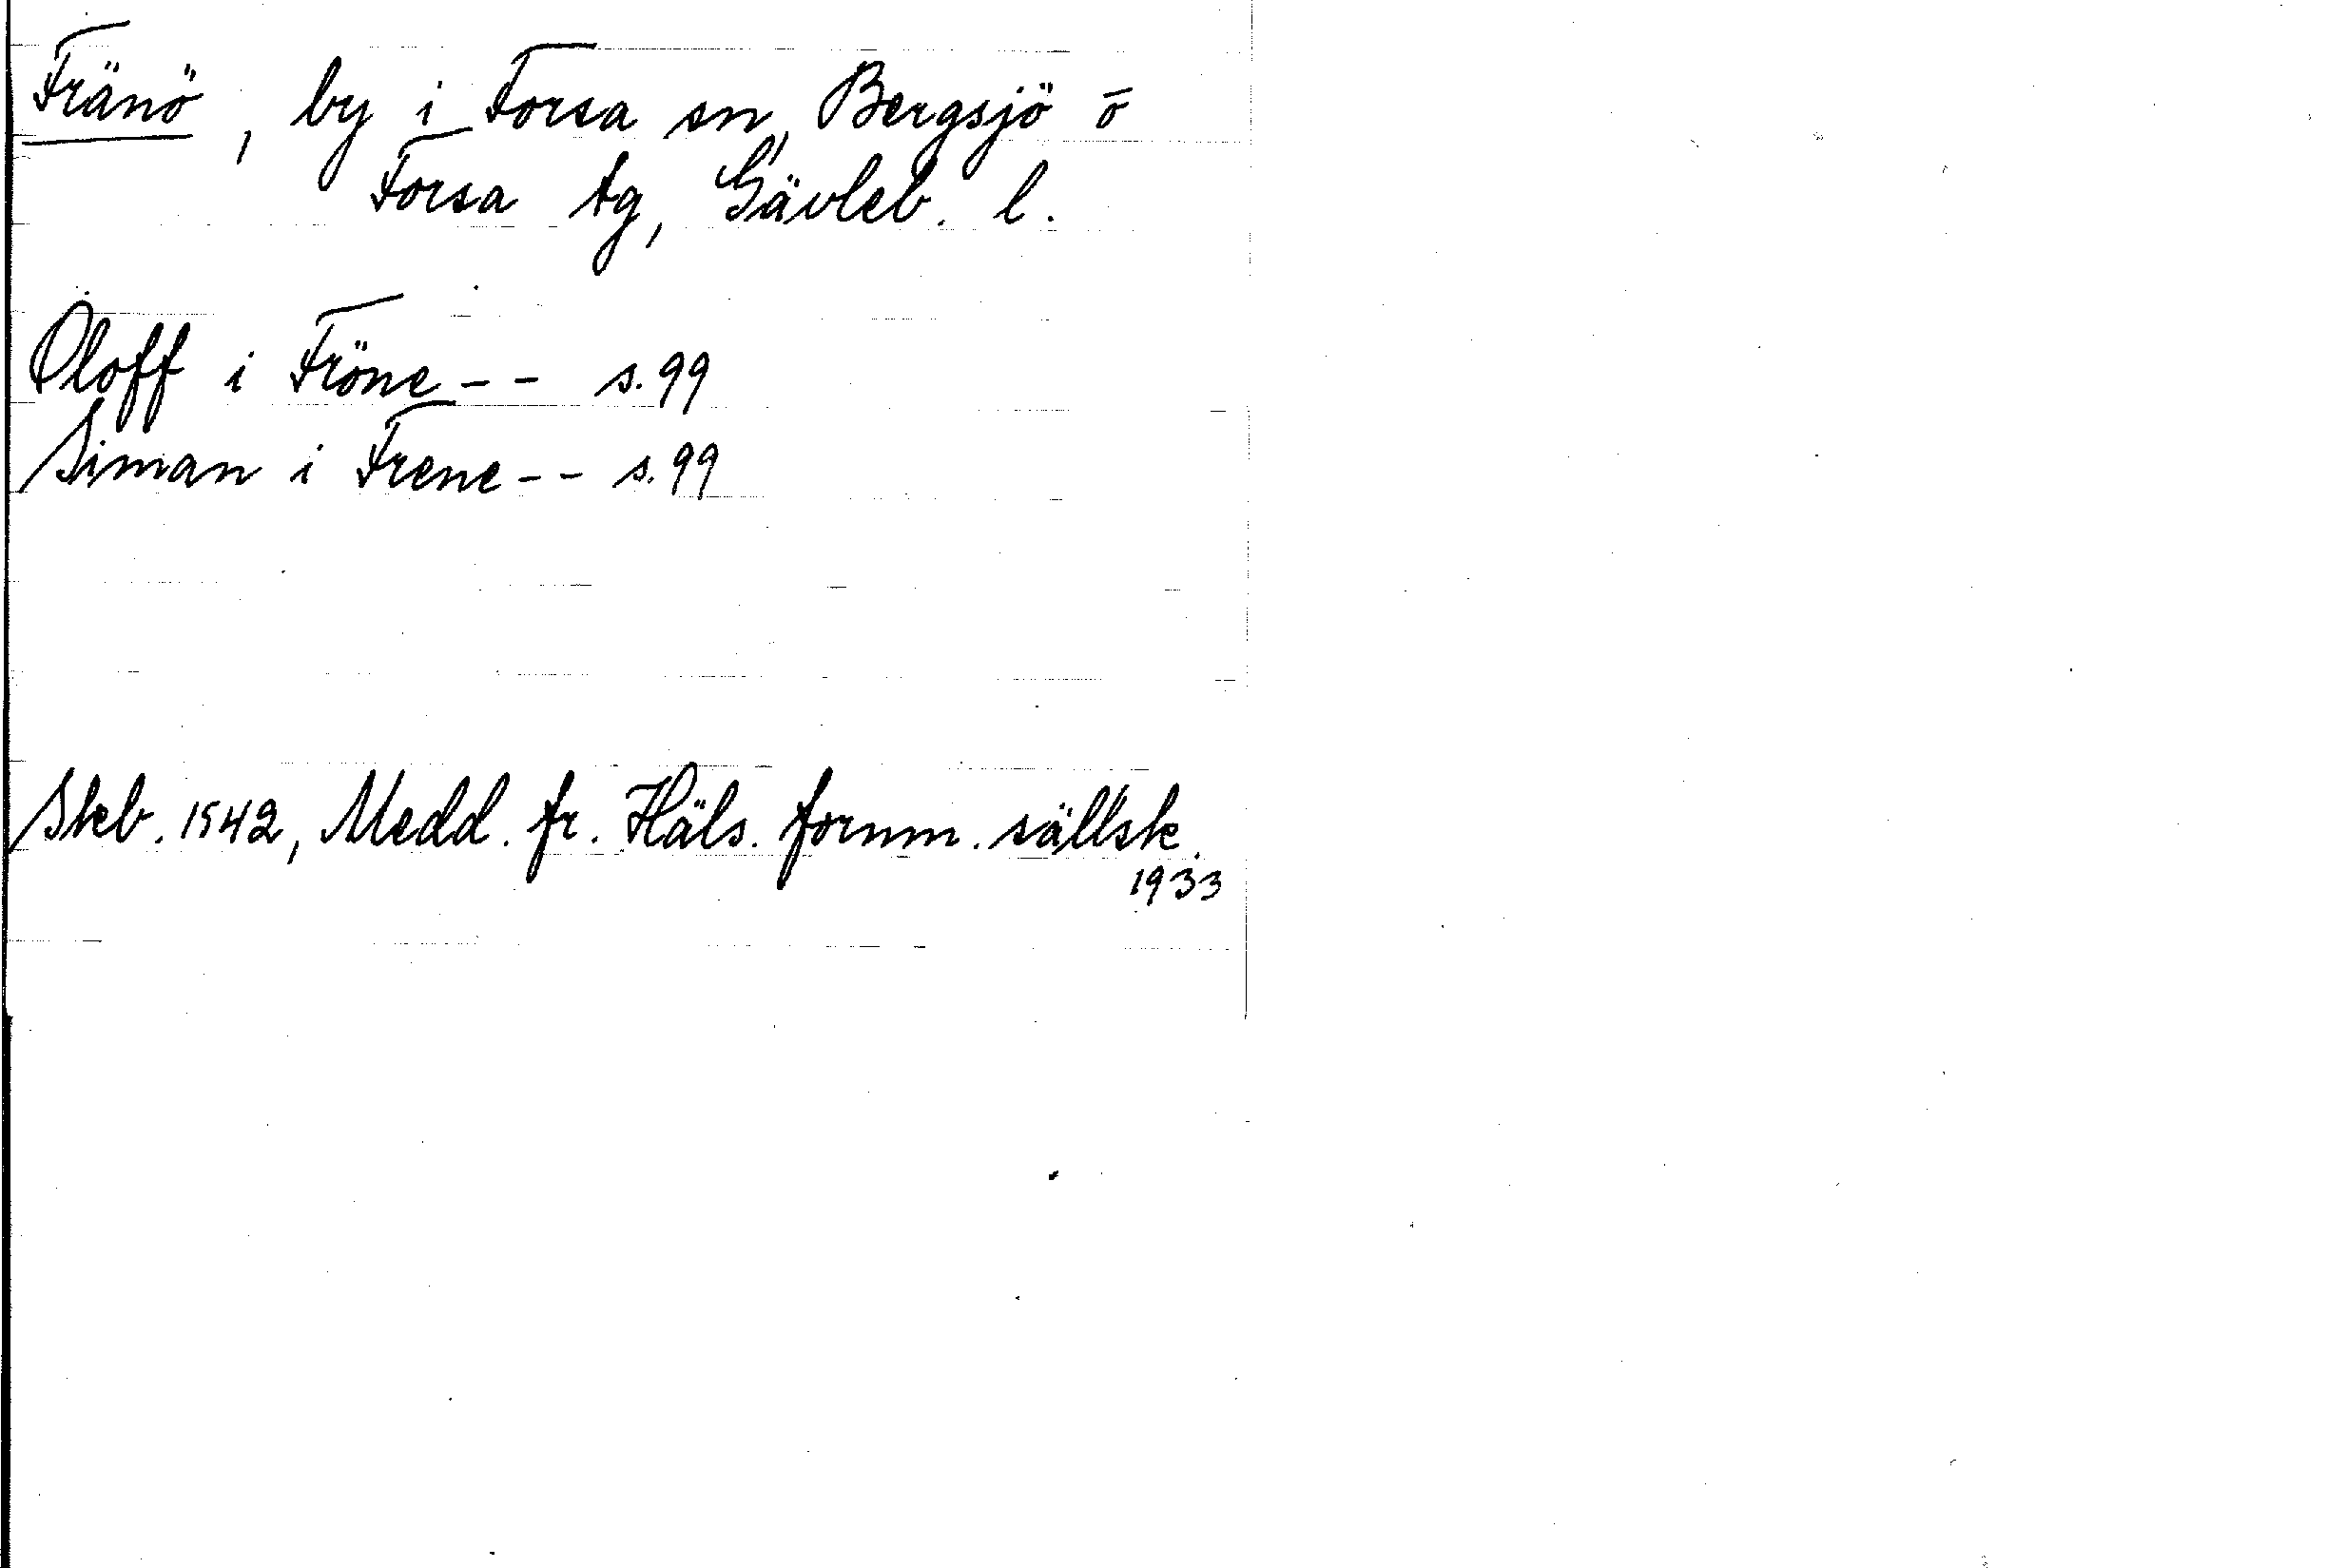 Fränö, by i Forsa sn, Bergsjö o
Forsa tg, Gävleb. l.
Oloff i Fröne -- s. 99
Siman i Frene -- s. 99
Skb. 1542, Medd. fr. Häls. fornm. sällsk.
1933